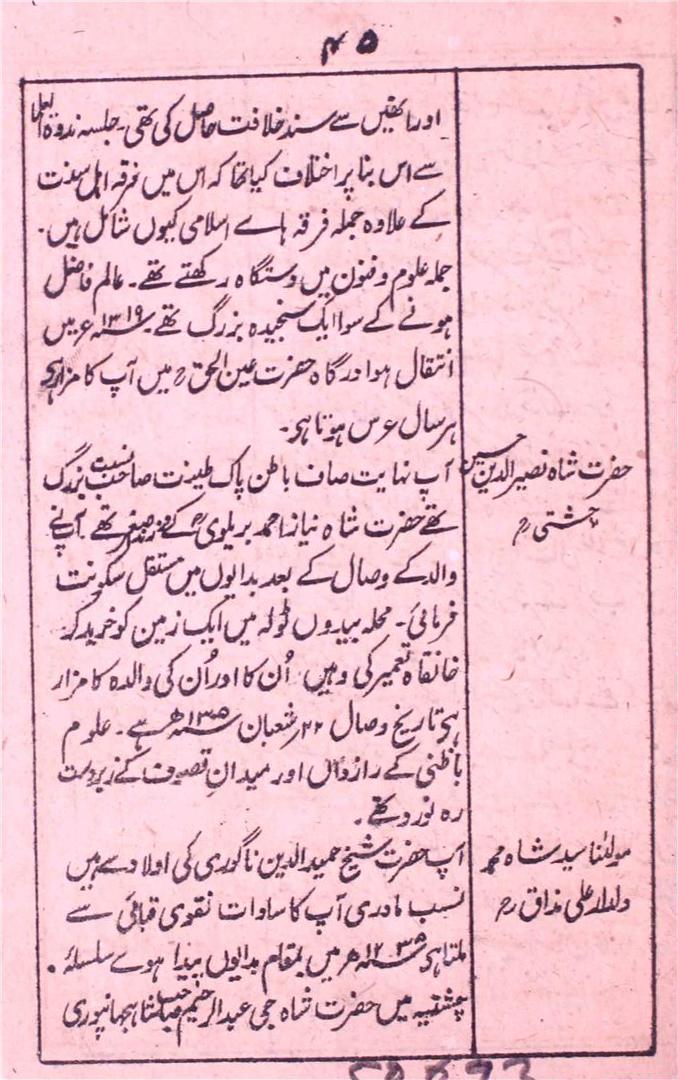 ۴۵
اور انھیں سے سند خلافت حاصل کی تھی۔ جلسہ ندوۃ العلما
سے اس بنا پر اختلاف کیا تھا کہ اس میں فرقہ اہل سنت
کے علاوہ جملہ فرقہ ہاے اسلامی کیوں شامل ہیں۔
جملہ علوم و فنون میں دستگاہ رکھتے تھے۔ عالم فاضل
ہونے کے سوا ایک سنجیدہ بزرگ تھے۔ ۱۳۱۹ میں
انتقال ہوا درگاہ حضرت عین الحق رح میں آپ کا مزار ہی
ہر سال عرس ہوتا ہی۔
حضرت شاہ نصیر الدین حسین
چشتی رح
آپ نہایت صاف باطن پاک طینت صاحب نسبت بزرگ
تھے حضرت شاہ نیاز احمد بریلوی رح کے فرزند اصغر تھے۔ اپنے
والد کے وصال کے بعد بدایوں میں مستقل سکونت
فرمائی۔ محلہ بیدوں ٹولہ میں ایک زمین کو خرید کر
خانقاہ تعمیر کی وہیں اُن کا اور اُن کی والدہ کا مزار
ہی تاریخ وصال ۲۲ شعبان ۱۳۰۵ھ ہے۔ علوم
باطنی کے رازداں اور میدانِ تصوف کے زبردست
رہ نورد تھے۔
مولٰنا سید شاہ محمد
دلدار علی مذاق رح
آپ حضرت شیخ حمید الدین ناگوری کی اولاد سے ہیں
نسب مادری آپ کا سادات نقوی قبائی سے
ملتا ہی ۱۲۳۵ھ میں بمقام بدایوں پیدا ہوے سلسلۂ
چشتیہ میں حضرت شاہ جی عبدالرحیم صاحب شاہجہانپوری